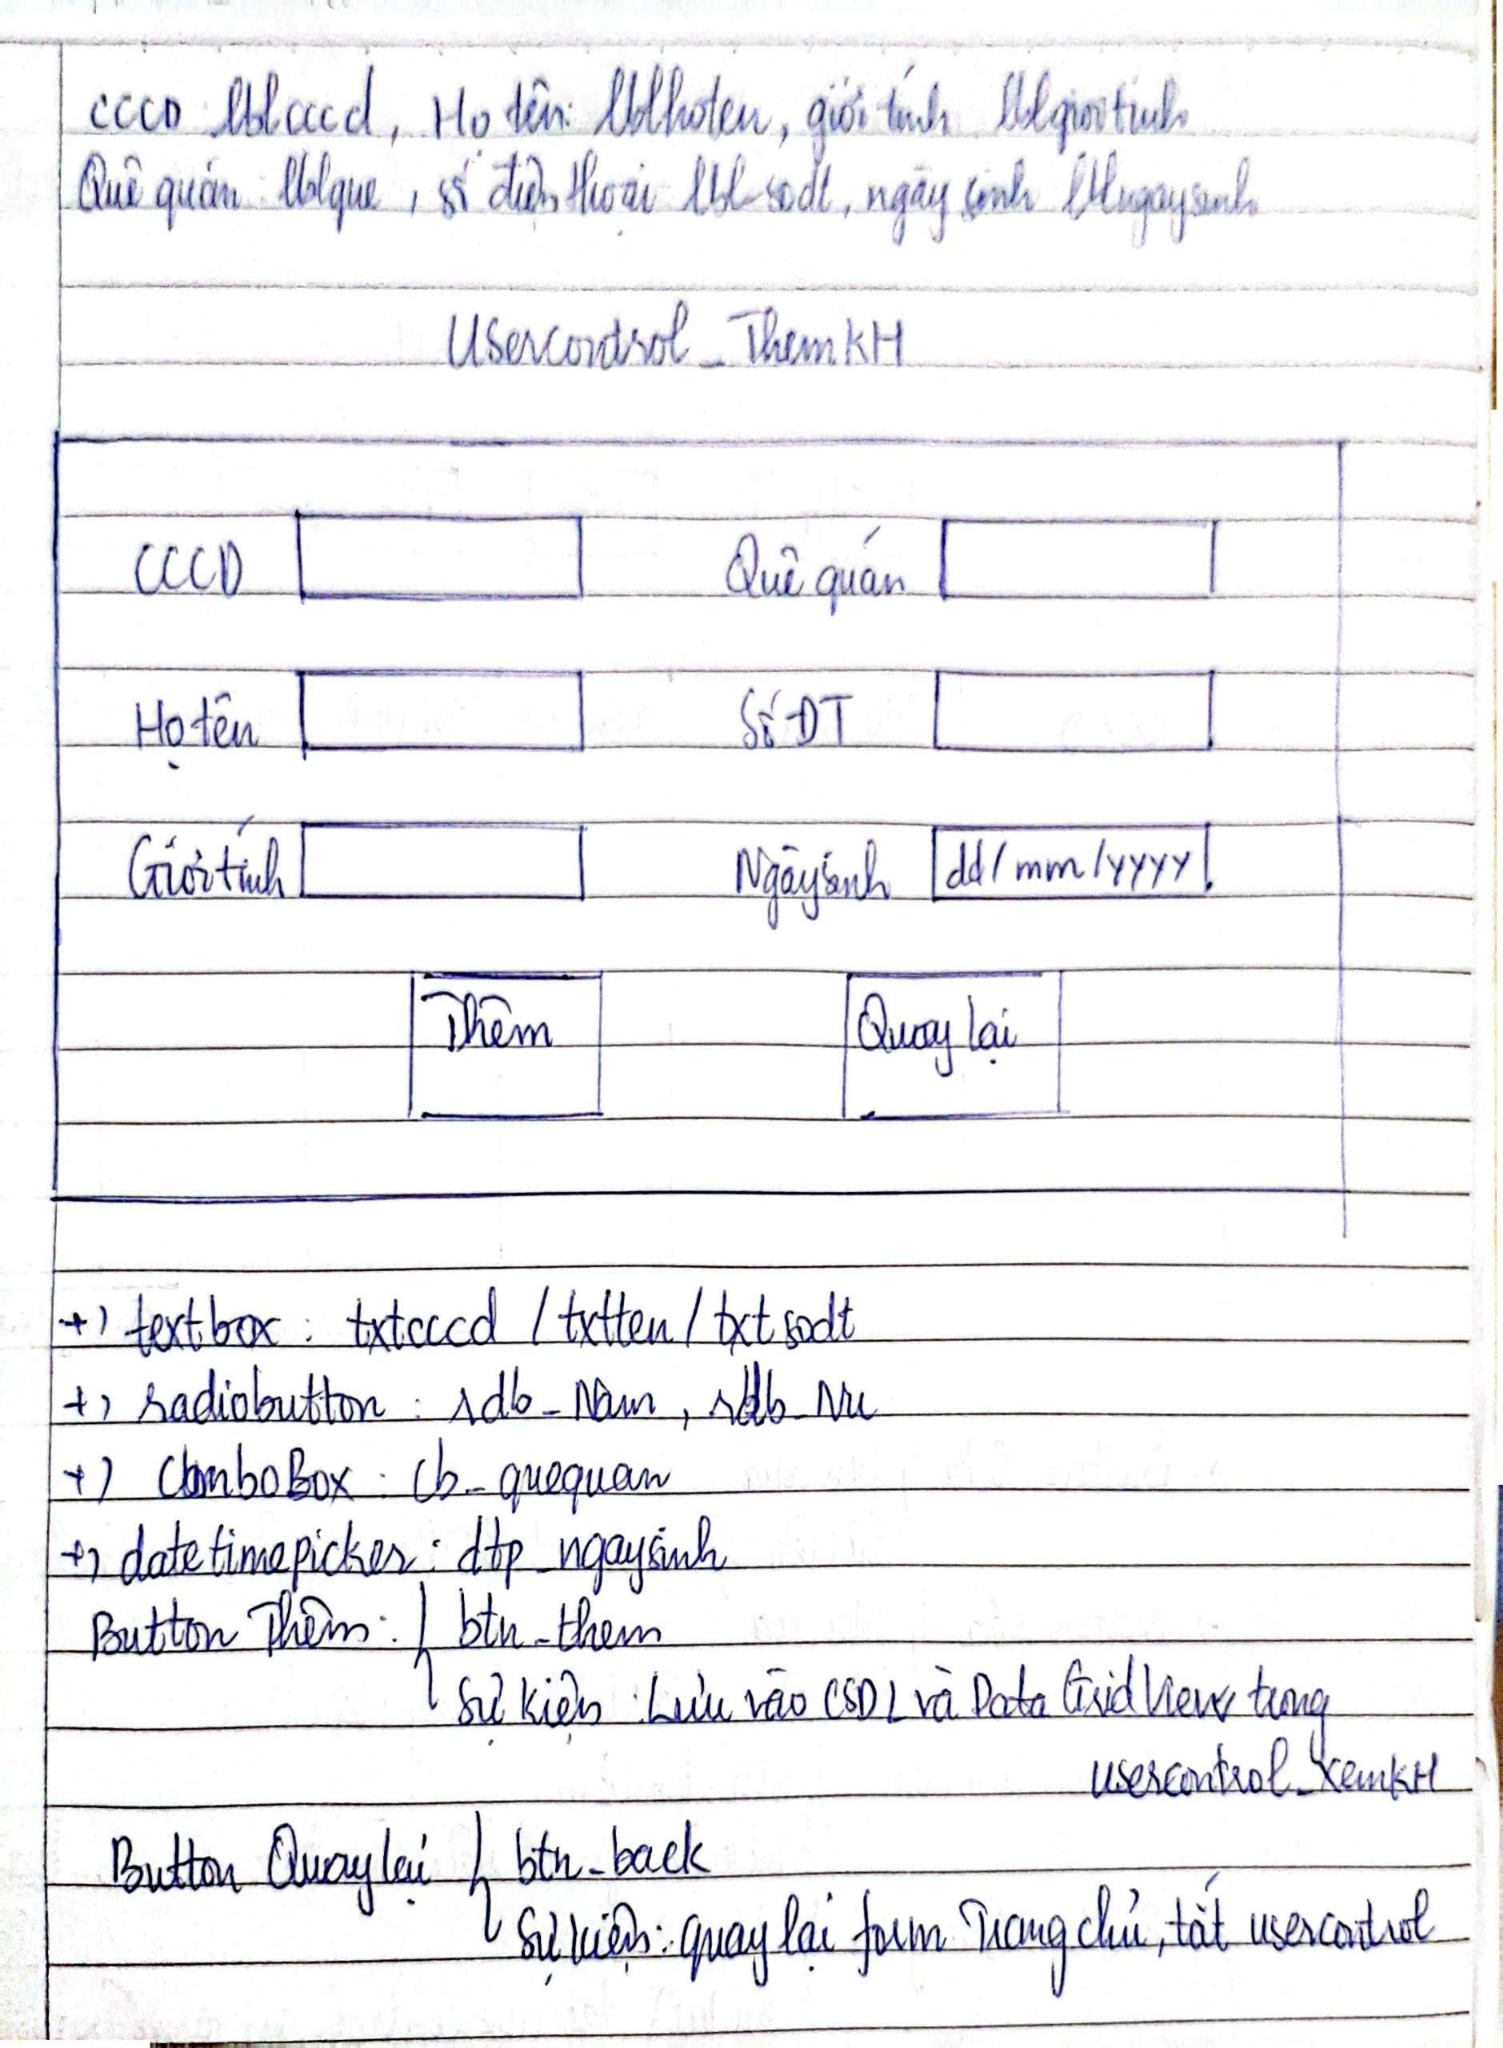 CCCD: lblcccd, Họ tên: lblhoten, giới tính lblgioitinh
Quê quán: lblque, số điện thoại lbl-sodt, ngày sinh lblngaysinh
Usercontrol_ThemKH
CCCD Quê quán
Họ tên Số ĐT
Giới tính Ngày sinh dd/mm/yyyy
Thêm Quay lại
+) textbox: txtcccd / txtten / txtsodt
+) radiobutton: rdb_Nam, rdb_Nu
+) ComboBox: cb_quequan
+) datetimepicker: dtp_ngaysinh
Button Thêm: btn_them
Sự kiện: Lưu vào CSDL và DataGridView trong
usercontrol_XemKH
Button Quay lại btn_back
Sự kiện: quay lại form Trang chủ, tắt usercontrol